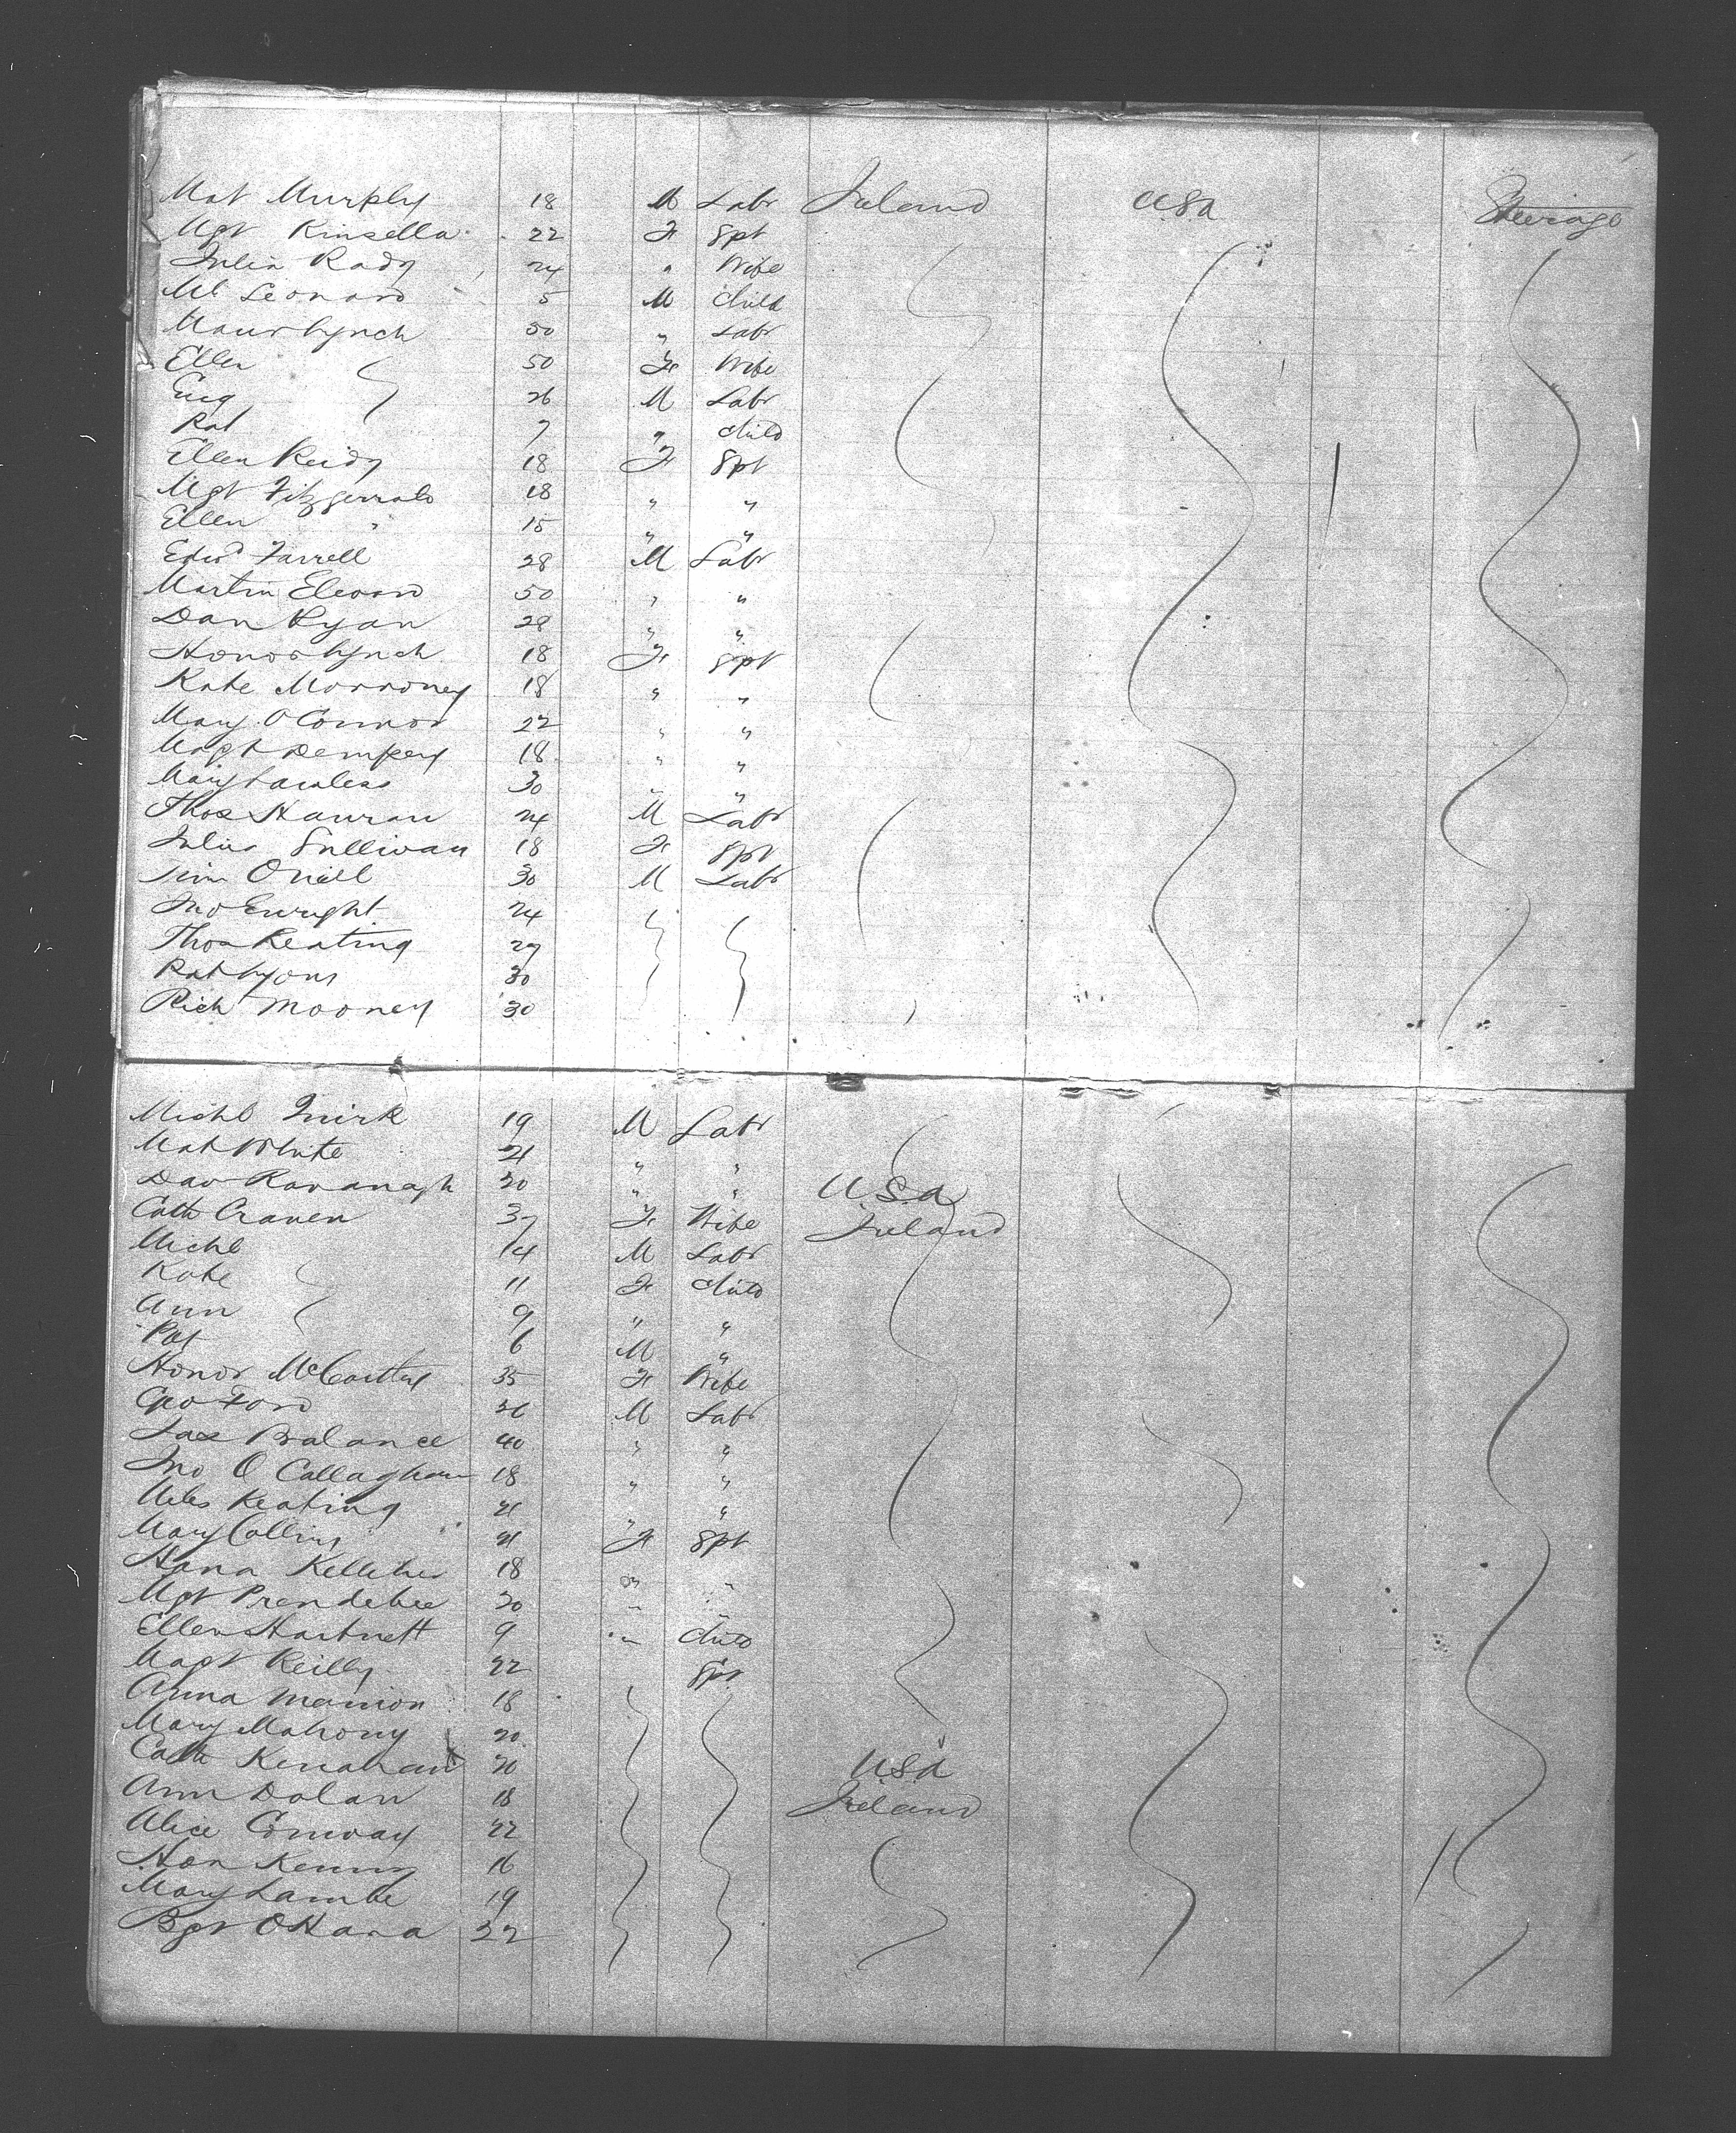 Mat Murphy 18 M Labr Ireland USA Steerage
Mgt Kinsella 22 F Spt
Julia Rady 24 " Wife
Ml Leonard 5 M Child
Maur Lynch 50 " Labr
Ellen 50 F Wife
Eug 26 M Labr
Pat 7 " Child
Ellen Reidy 18 F Spt
Mgt Fitzgerrald 18 " "
Ellen " 15 " "
Edwd Farrell 28 M Labr
Martin Elward 50 " "
Dan Ryan 28 " "
Honor Lynch 18 F Spt
Kate Morroney 18 " "
Mary O'Connor 22 " "
Magt Dempsey 18 " "
Mary Lawless 30 " "
Thos Hanran 24 M Labr
Julia Sullivan 18 F Spt
Tim O'neil 30 M Labr
Jno Enright 24
Thos Keating 27
Pat Lyons 30
Rich Mooney 30
Michl Quirk 19 M Labr
Mat White 21 " "
Dav Kavanagh 30 " " USA
Cath Craven 37 F Wife Ireland
Michl 14 M Labr
Kate 11 F Child
Ann 9 " "
Pat 6 M "
Honor McCarthy 35 F Wife
Geo Ford M Labr
Jas Balance 40 " "
Jno O Callaghan 18 " "
Miles Keating 21 " "
Mary Collins 21 F Spt
Hana Kelleher 18 " "
Mgt Prendebee 20 " "
Ellen Hartnett 9 " Child
Magt Reilly 22 Spt
Anna Mannion 18
Mary Mahony 20
Cath Kenahan 20 USA
Ann Dolan 18 Ireland
Alice Conway 22
Hon Kenny 16
Mary Lambe 19
Bgt O'Hara 32